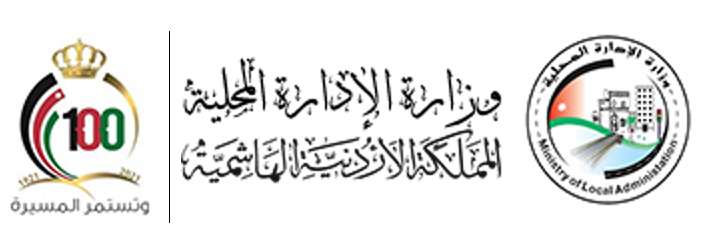 وزارة الإدارة المحلية
المملكة الأردنية الهاشمية
وزارة الإدارة المحلية
Ministry of Local Administation
100
1921 2021
وتستمر المسيرة